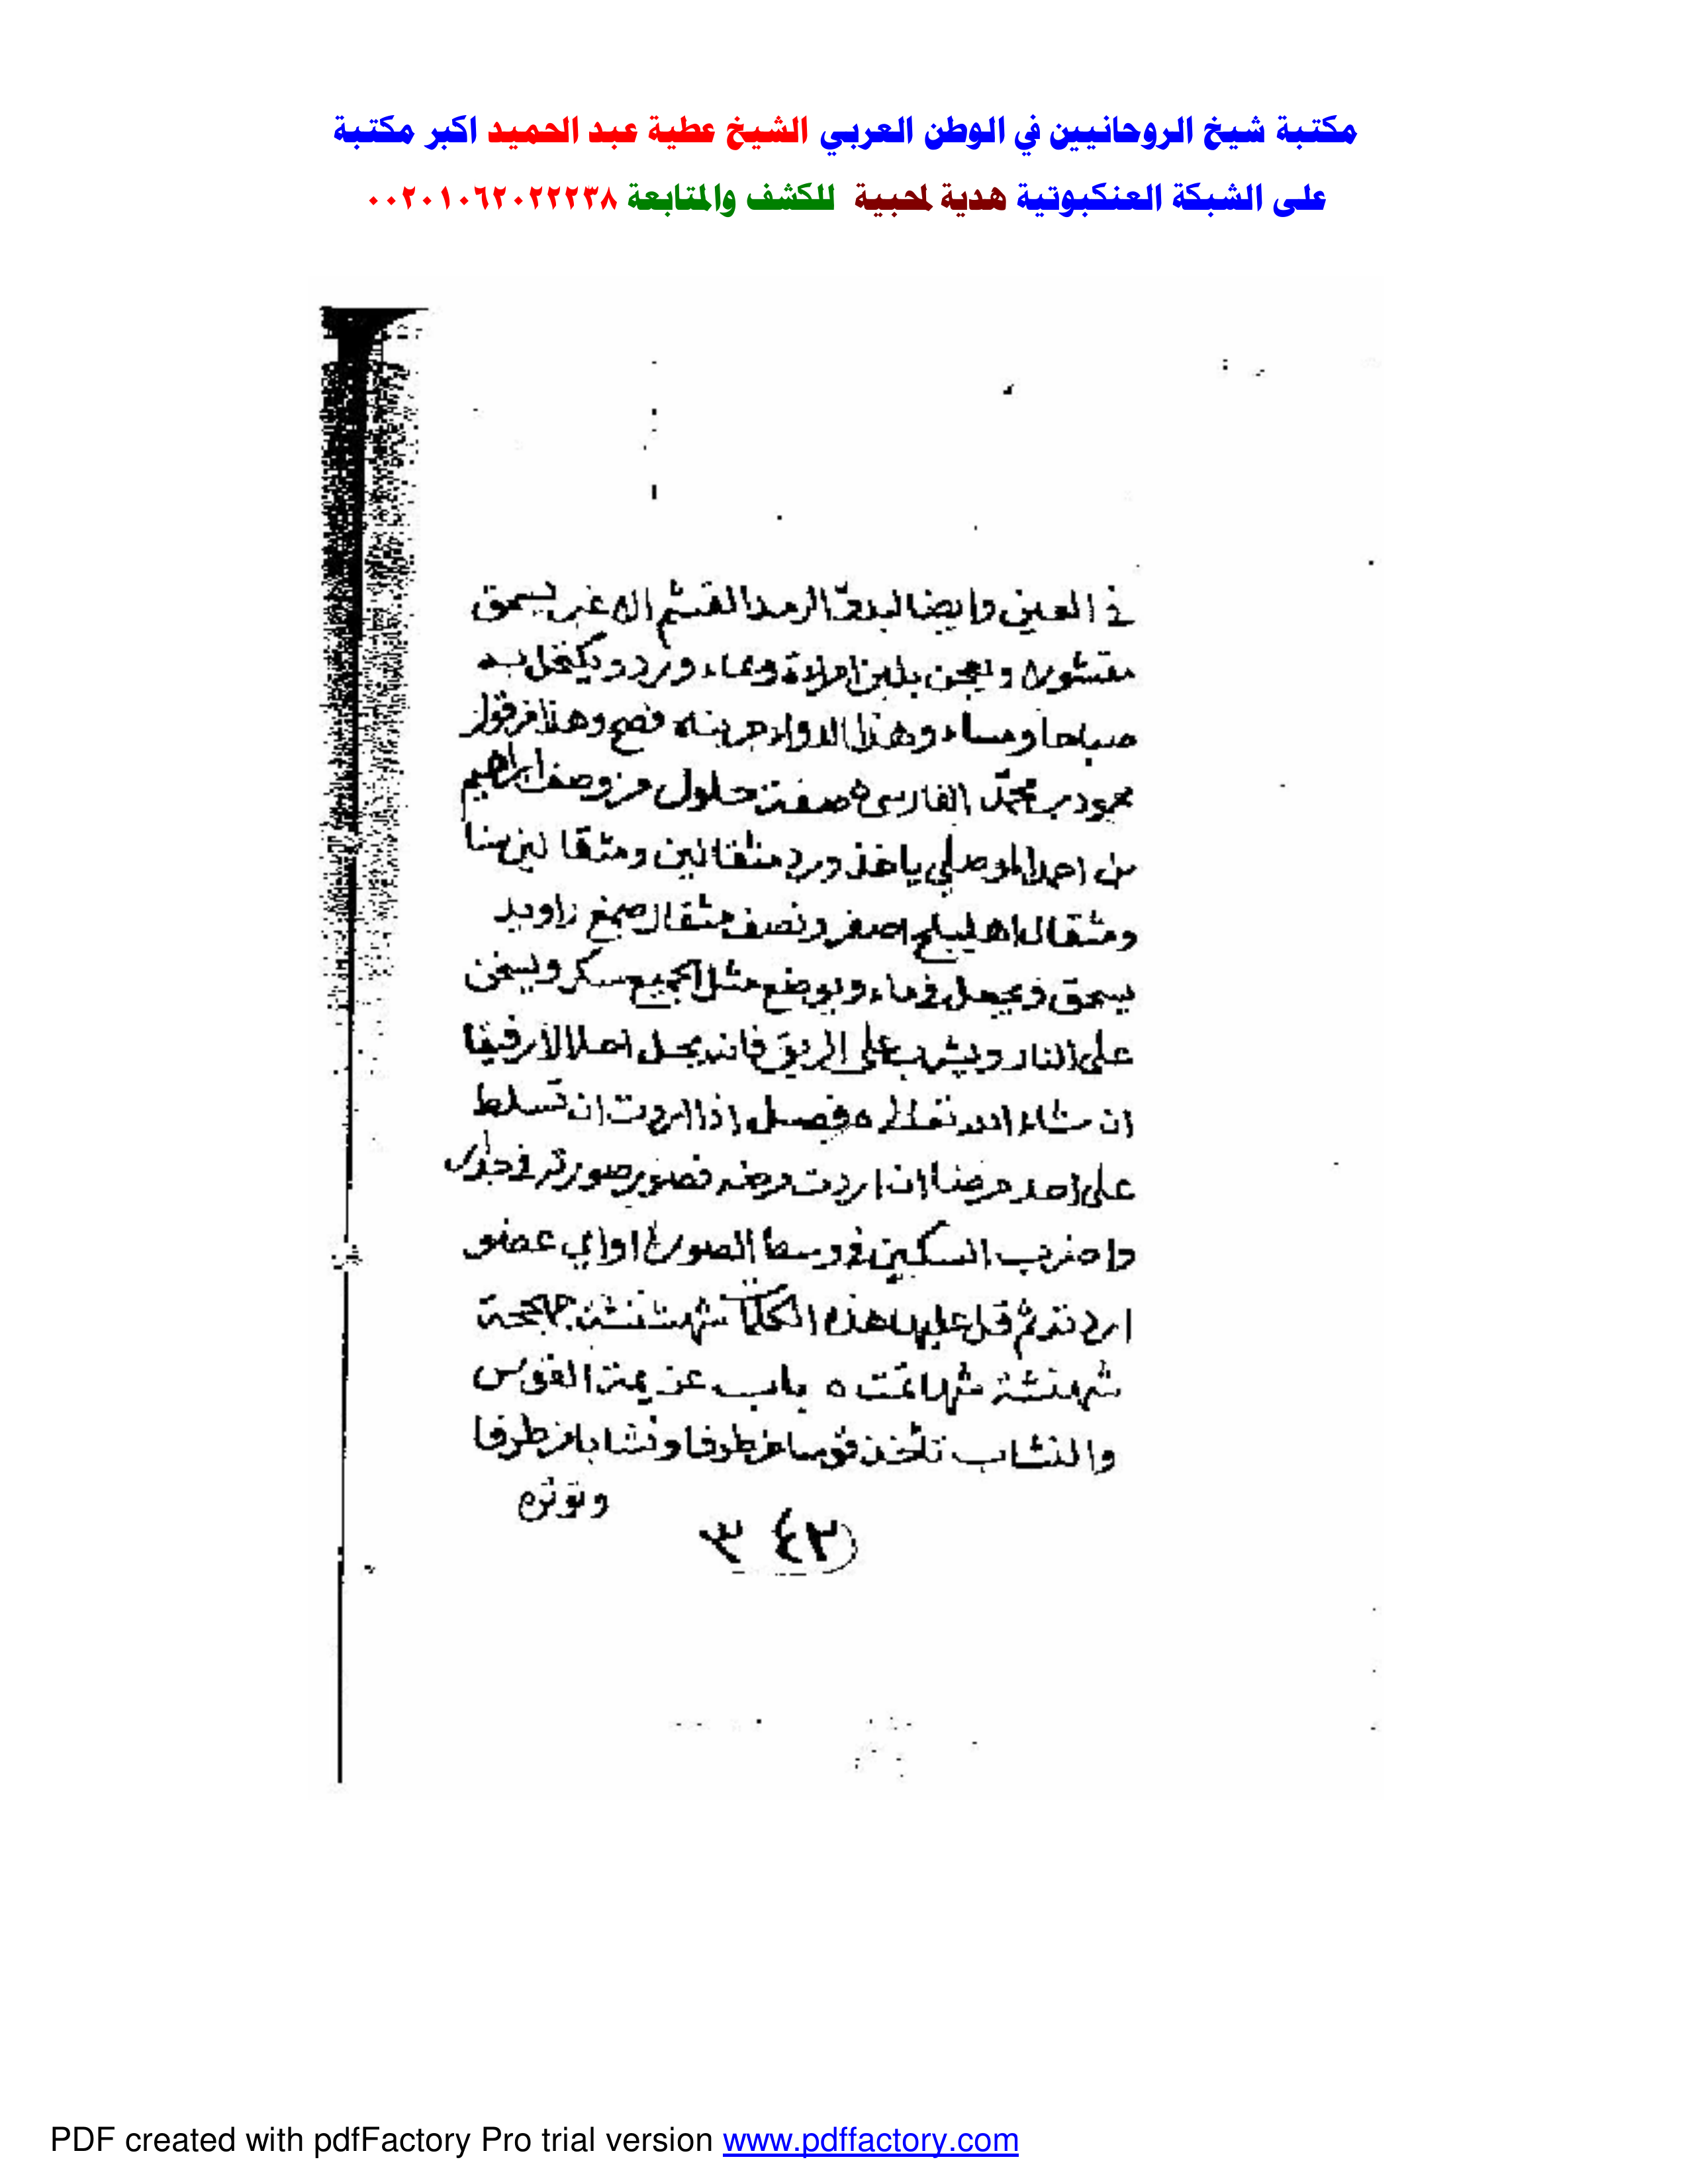 مكتبة شيخ الروحانيين في الوطن العربي الشيخ عطية عبد الحميد اكبر مكتبة
على الشبكة العنكبوتية هدية لمحبية للكشف والمتابعة ٠٠٢٠١٠٦٢٠٢٢٢٣٨
في العين وايضا الرمد يسحق
ويعجن بلبن امراة وماء ورد ويكتحل به
صباحا ومساء وهذا الدواء جربته فصح وهذا من قول
محمود بن محمد الفارسي ٥ صفة حلول من وصف ابراهيم
بن احمد الموصلي ياخذ ورد مثقالين ومثقالين سنا
ومثقال اهليلج اصفر ونصف مثقال صمغ راويد
يسحق ويجعل في ماء ويوضع مثل الجميع سكر ويسخن
على النار ويشرب على الريق فانه يحل
ان شاء الله تعالى ٥ فصل اذا اردت ان تسلط
على احد مرضا ان اردت مرضه فصور صورته في
واضرب السكين في وسط الصورة او اي عضو
اردته ثم قل عليها هذه الكلمات
تمت ٥ باب عزيمة القوس
والنشاب تأخذ قوسا من طرفا ونشابا من طرفا
وتوتره
٣٤٢
PDF created with pdfFactory Pro trial version www.pdffactory.com